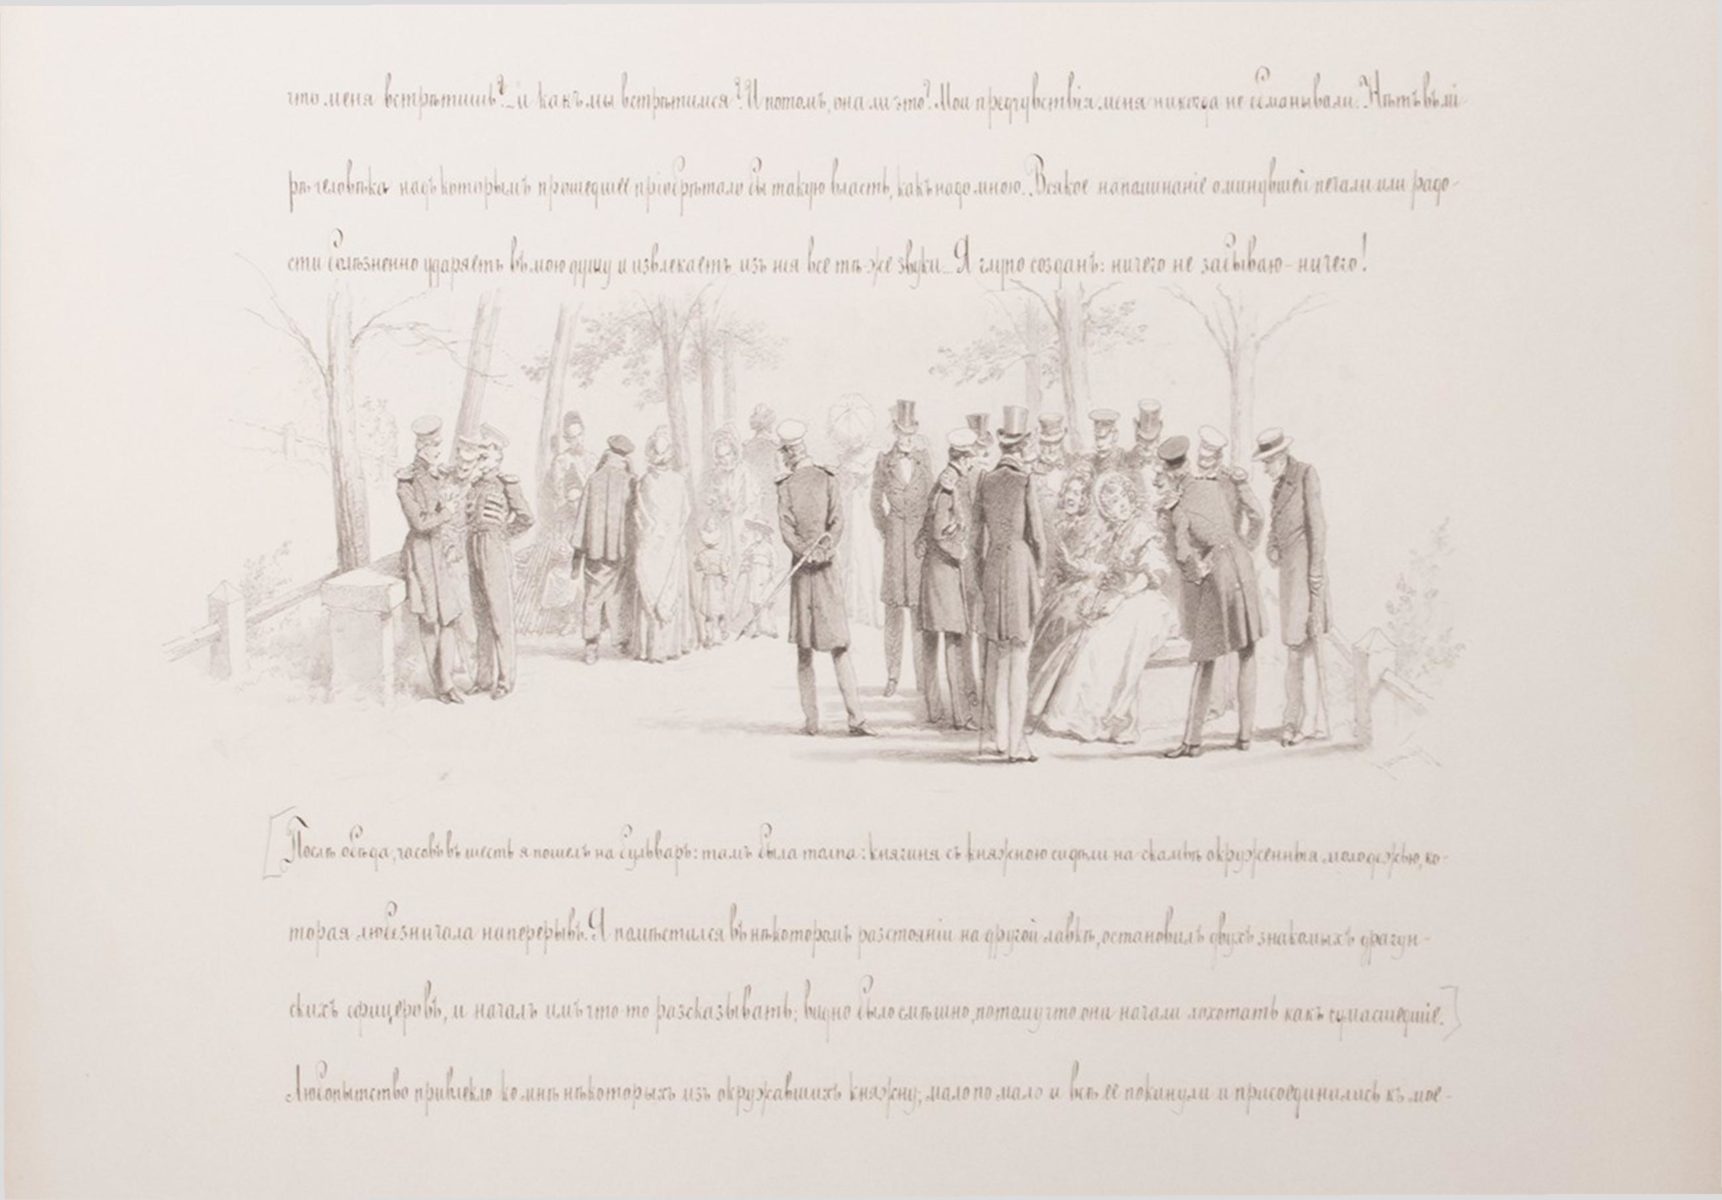 что меня встрѣтишь?.. и какъ мы встрѣтимся? И потомъ, она ли это? Мои предчувствія меня никогда не обманывали. Нѣтъ въ мі-
рѣ человѣка надъ которымъ прошедшее пріобрѣтало бы такую власть, какъ надо мною. Всякое напоминаніе о минувшей печали или радо-
сти болѣзненно ударяетъ въ мою душу и извлекаетъ изъ нея все тѣ-же звуки... Я глупо созданъ: ничего не забываю - ничего!
[Послѣ обѣда, часовъ въ шесть я пошелъ на бульваръ: тамъ была толпа: княгиня съ княжною сидѣли на скамьѣ окруженныя молодежью, ко-
торая любезничала наперерывъ. Я помѣстился въ нѣкоторомъ разстояніи на другой лавкѣ, остановилъ двухъ знакомыхъ драгун-
скихъ офицеровъ, и началъ имъ что то разсказывать; видно было смѣшно, потому что они начали хохотать какъ сумасшедшіе.]
Любопытство привлекло ко мнѣ нѣкоторыхъ изъ окружавшихъ княжну; мало по малу и всѣ ее покинули и присоединились къ мое-